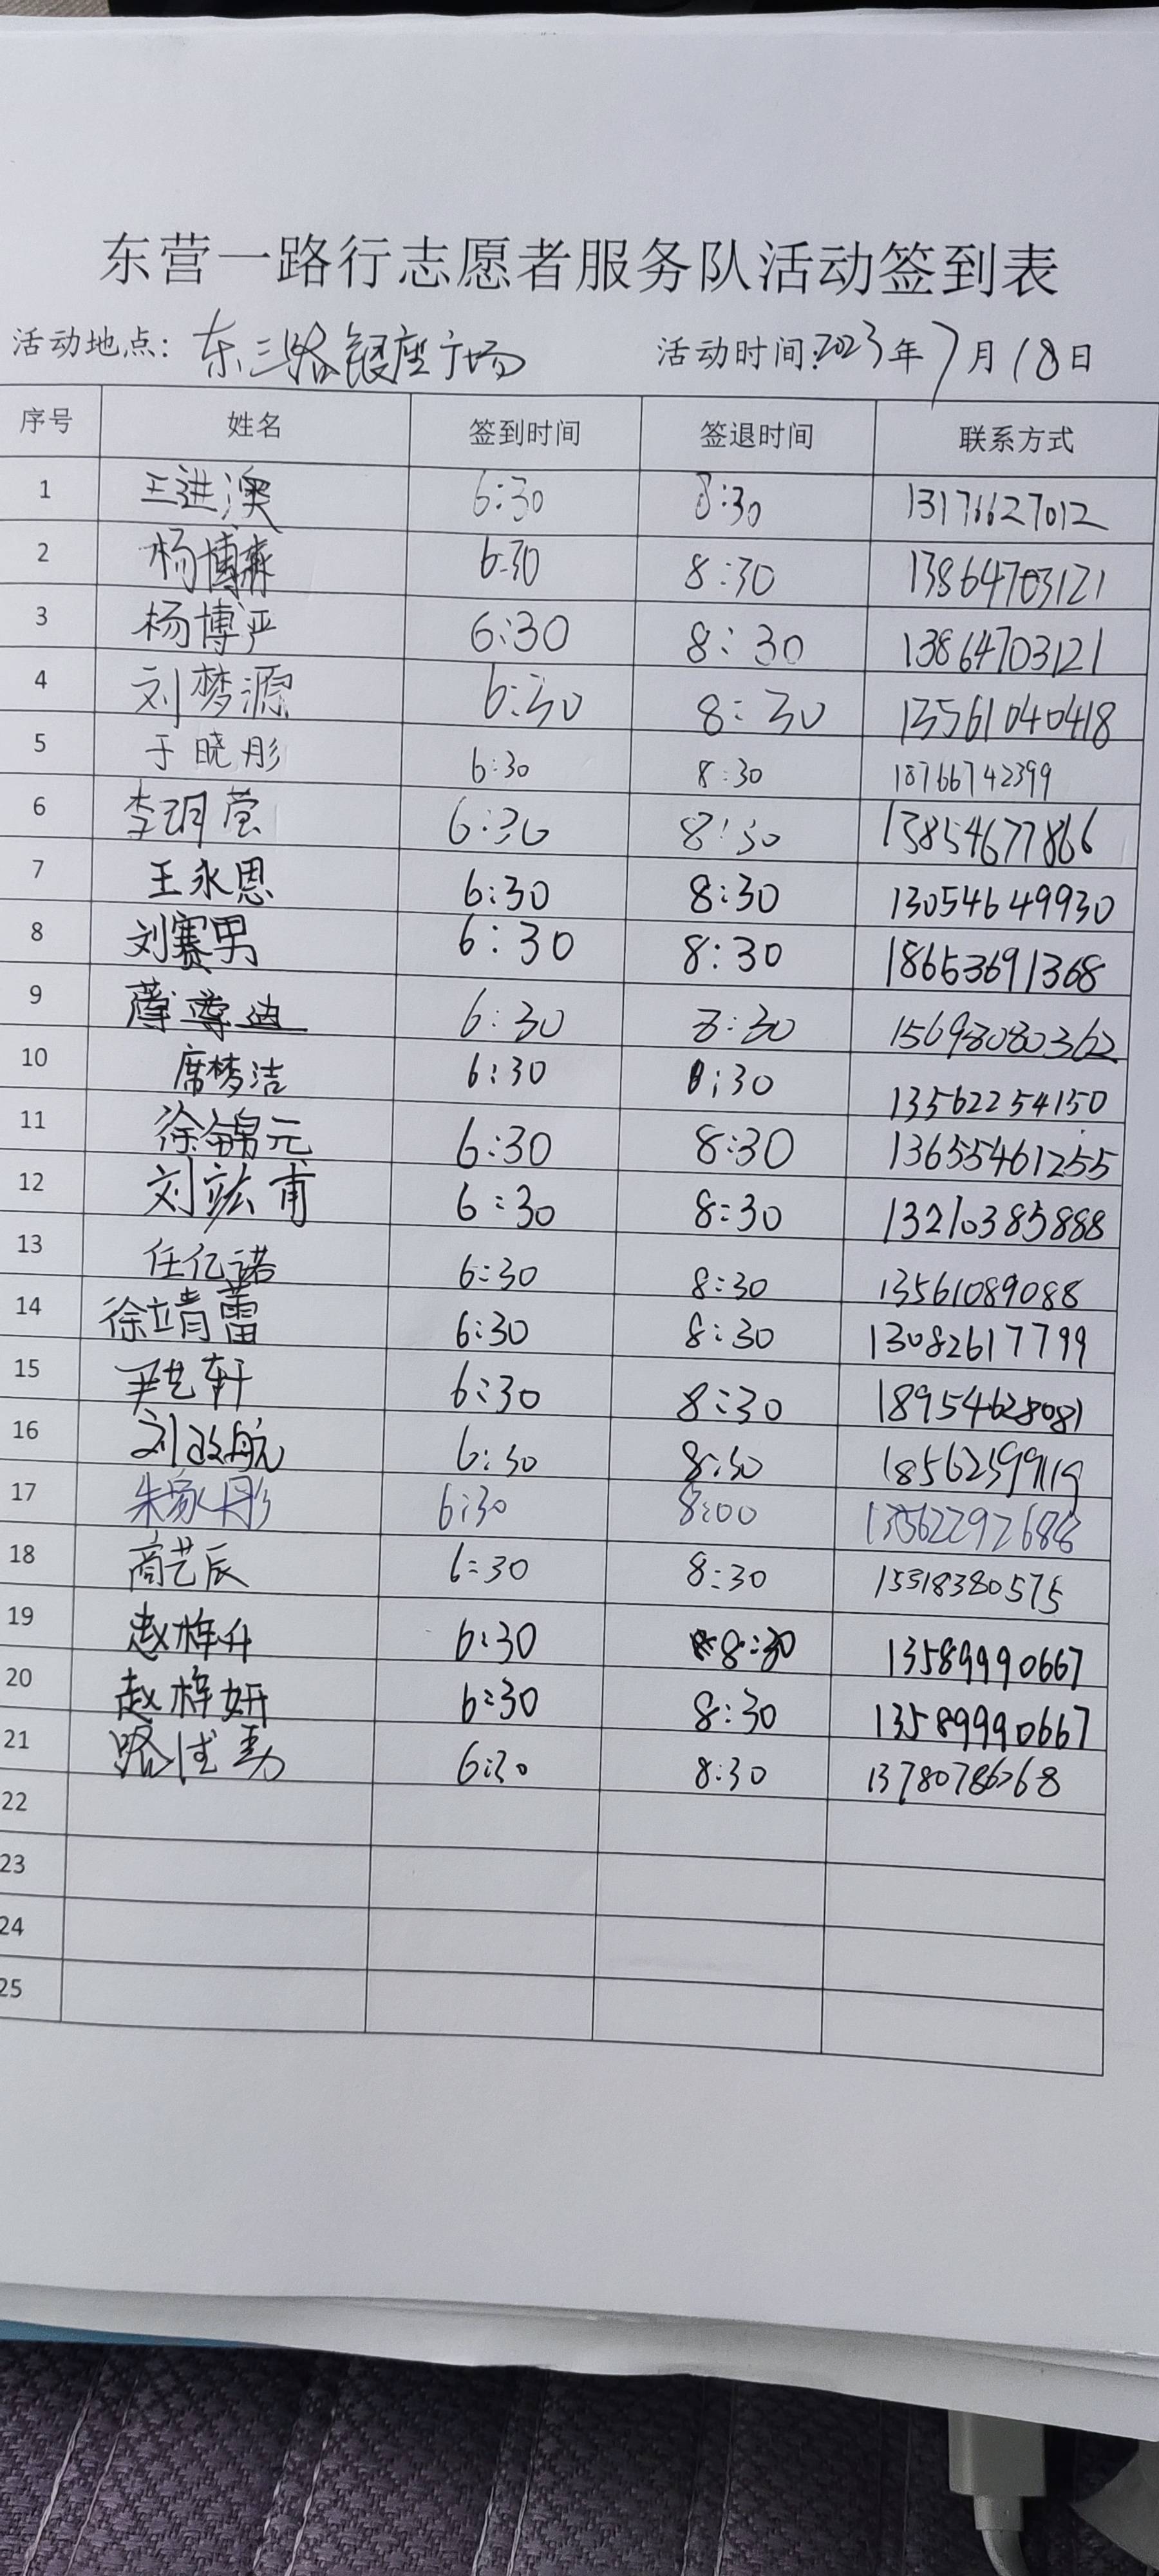 东营一路行志愿者服务队活动签到表
活动地点：东三路银座广场 活动时间：2023年7月18日
序号 姓名 签到时间 签退时间 联系方式
1 王进澳 6:30 8:30 13176627012
2 杨博森 6:30 8:30 13864703121
3 杨博严 6:30 8:30 13864703121
4 刘梦源 6:30 8:30 13561040418
5 于晓彤 6:30 8:30 18766742399
6 李玥莹 6:30 8:30 13854677866
7 王永恩 6:30 8:30 13054649930
8 刘赛男 6:30 8:30 18653691368
9 6:30 8:30 15698080362
10 席梦洁 6:30 8:30 13562254150
11 徐锦元 6:30 8:30 13655461255
12 刘竑甫 6:30 8:30 13210385888
13 任亿诺 6:30 8:30 13561089088
14 徐靖蕾 6:30 8:30 13082617799
15 尹艺轩 6:30 8:30 18954628081
16 刘政航 6:30 8:30
17 朱家彤 6:30 8:00 13562292688
18 商艺辰 6:30 8:30 15318380575
19 赵梓升 6:30 8:30 13589990667
20 赵梓妍 6:30 8:30 13589990667
21 6:30 8:30 13780786268
22
23
24
25